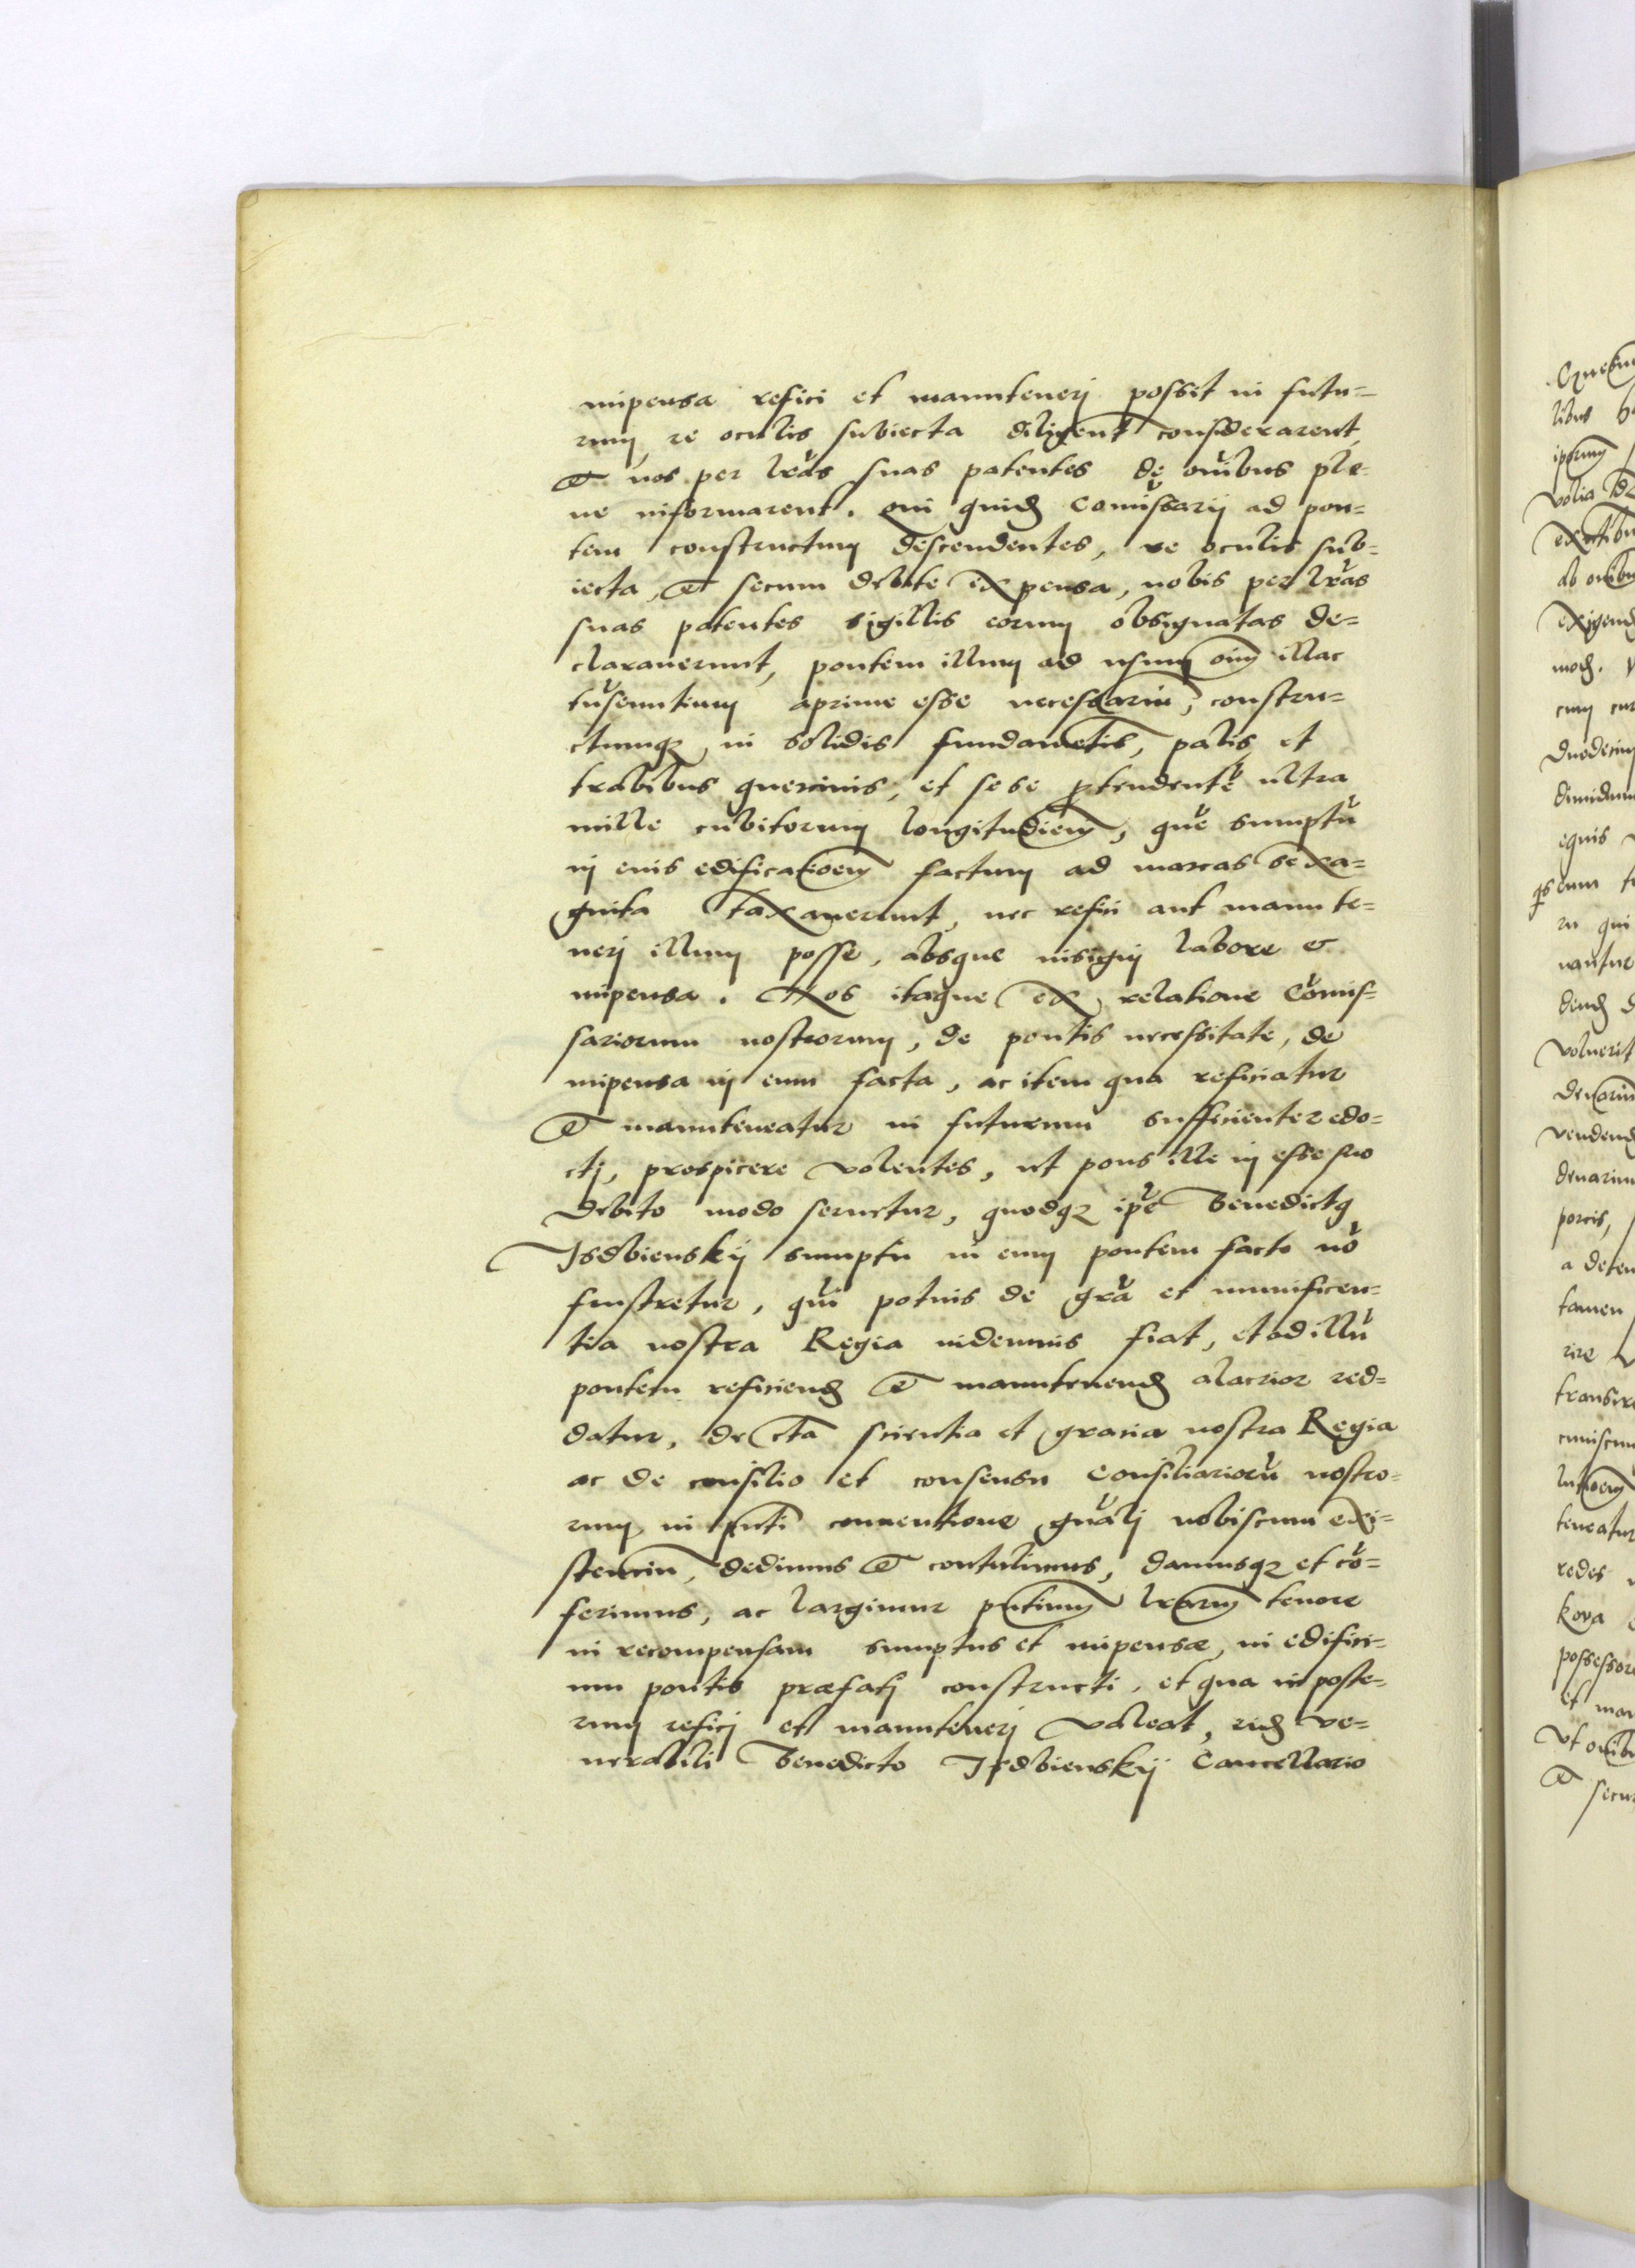 impensa refici et manuteneri possit in futu=
rum, re oculis subiecta diligent considerarent
et nos per lras suas patentes de oibus ple=
ne informarent. qui quid Comissarij ad pon=
tem constructum descendentes, re oculis sub=
iecta, et secum debite expensa, nobis per lras
suas patentes sigillis eorum obsignatas de=
claraverunt, pontem illum ad usum oim illac
tuseuntium aprime esse necessariu, constru=
ctumq, in solidis fundametis, palis et
trabibus quercinis, et sese ptendente ultra
mille cubitorum longitudiem, que sumptu
in eius edificatioem factum ad marcas sexa=
ginta taxaverunt, nec refici aut manute=
neri illum posse, absque insigni labore et
impensa. Nos itaque ex relatione Comis=
sariorum nostrorum, de pontis necessitate, de
impensa in eum facta, ac item qua reficiatur
et manuteneatur in futurum sufficienter edo=
cti, prospicere volentes, ut pons ille in esse suo
debito modo servetur, quodq ipe Benedictg
Isdbienskij sumptu in eum pontem facto no
frustretur, qui potius de gra et munificen=
tia nostra Regia indemnis fiat, et ad illu
pontem reficiend et manutenend alacrior red=
datur, de cta scientia et gracia nostra Regia
ac de consilio et consensu Consiliarioru nostro=
rum in pnti conventione gnali nobiscum exi=
stenciu, dedimus et contulimus, damusq et co=
ferimus, ac largimur pntium lrarum tenore
in recompensam sumptus et impensæ, in edifici=
um pontis præfati constructi, et qua in poste=
rum refici et manuteneri valeat, eid ve=
nerabili Benedicto Isdbienskij Cancellario